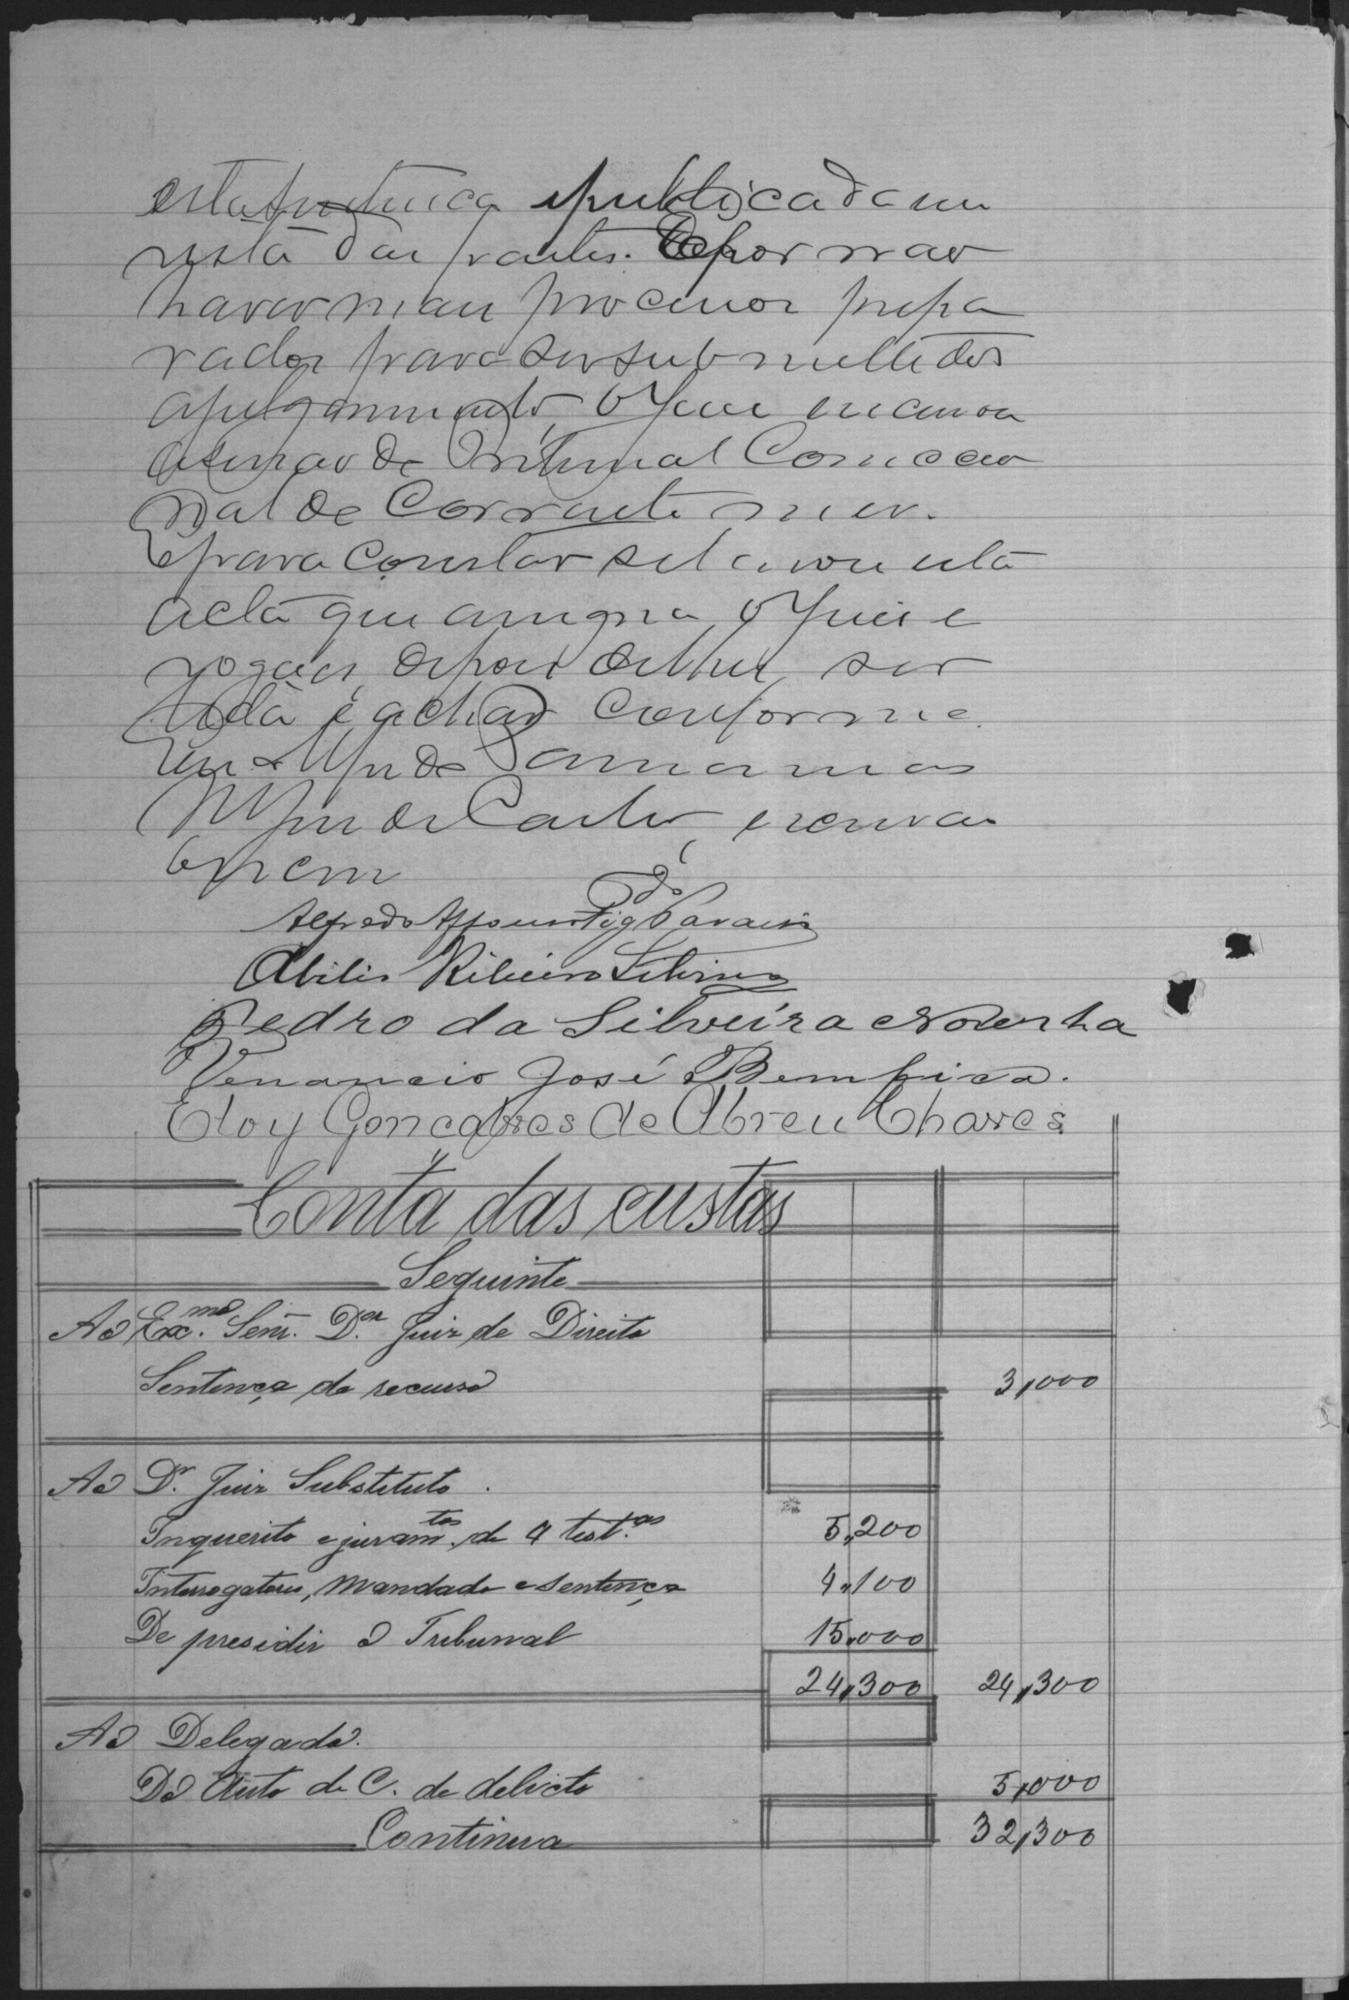 esta sentença epublicada em
vista das partes. E por não
haver mais processos prepa
rados para ser submettidos
a julgamento, o Juiz
de Tribunal Correccio
nal de Corrente mez.
E para constar se lavrou esta
acta que assigna o Juiz e
vogaes depois de lhes ser
lida e achar conforme
Eu
de Castro, escrivão
escrevi
Alfredo
Abilio Ribeiro Silvino
Pedro da Silveira Noronha
Venancio José Bemfica.
Eloy Gonçalves de Abreu Chaves
Conta das custas
Seguinte
Ao Ex.mo Senr. D.or Juiz de Direito
Sentença de recurso 3,000
Ao Dr. Juiz Substituto.
Inquerito e juram.tos de 4 test.as 5,200
Interrogatorio, mandado e sentença 4,100
De presidir o Tribunal 15,000
24,300 24,300
Ao Delegado.
Do Auto de C. de delicto 5,000
Continua 32,300